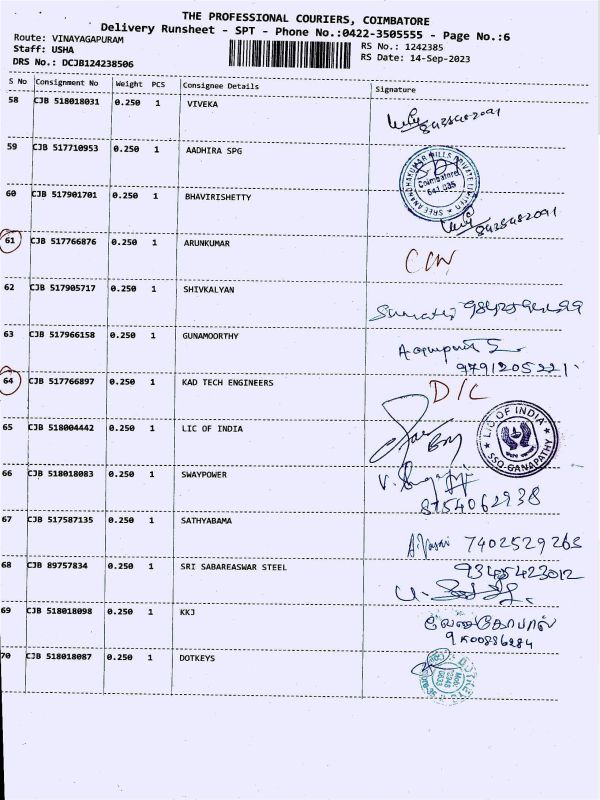 THE PROFESSIONAL COURIERS, COIMBATORE
Delivery Runsheet - SPT - Phone No.:0422-3505555 - Page No.:6
Route: VINAYAGAPURAM
RS No.: 1242385
Staff: USHA
RS Date: 14-Sep-2023
DRS No.: DCJB124238506
S No Consignment No Weight PCS Consignee Details Signature
58 CJB 518018031 0.250 1 VIVEKA
59 CJB 517710953 0.250 1 AADHIRA SPG
SREE ANANDHAKUMAR MILLS PRIVATE LIMITED
Coimbatore
641 035
60 CJB 517901701 0.250 1 BHAVIRISHETTY
61 CJB 517766876 0.250 1 ARUNKUMAR
62 CJB 517905717 0.250 1 SHIVKALYAN
63 CJB 517966158 0.250 1 GUNAMOORTHY
9791205221
64 CJB 517766897 0.250 1 KAD TECH ENGINEERS D/C
65 CJB 518004442 0.250 1 LIC OF INDIA
LIC OF INDIA
SSO-GANAPATHY
66 CJB 518018083 0.250 1 SWAYPOWER
8754062938
67 CJB 517587135 0.250 1 SATHYABAMA
7402529263
68 CJB 89757834 0.250 1 SRI SABAREASWAR STEEL 9345423012
69 CJB 518018098 0.250 1 KKJ வேணுகோபால்
70 CJB 518018087 0.250 1 DOTKEYS